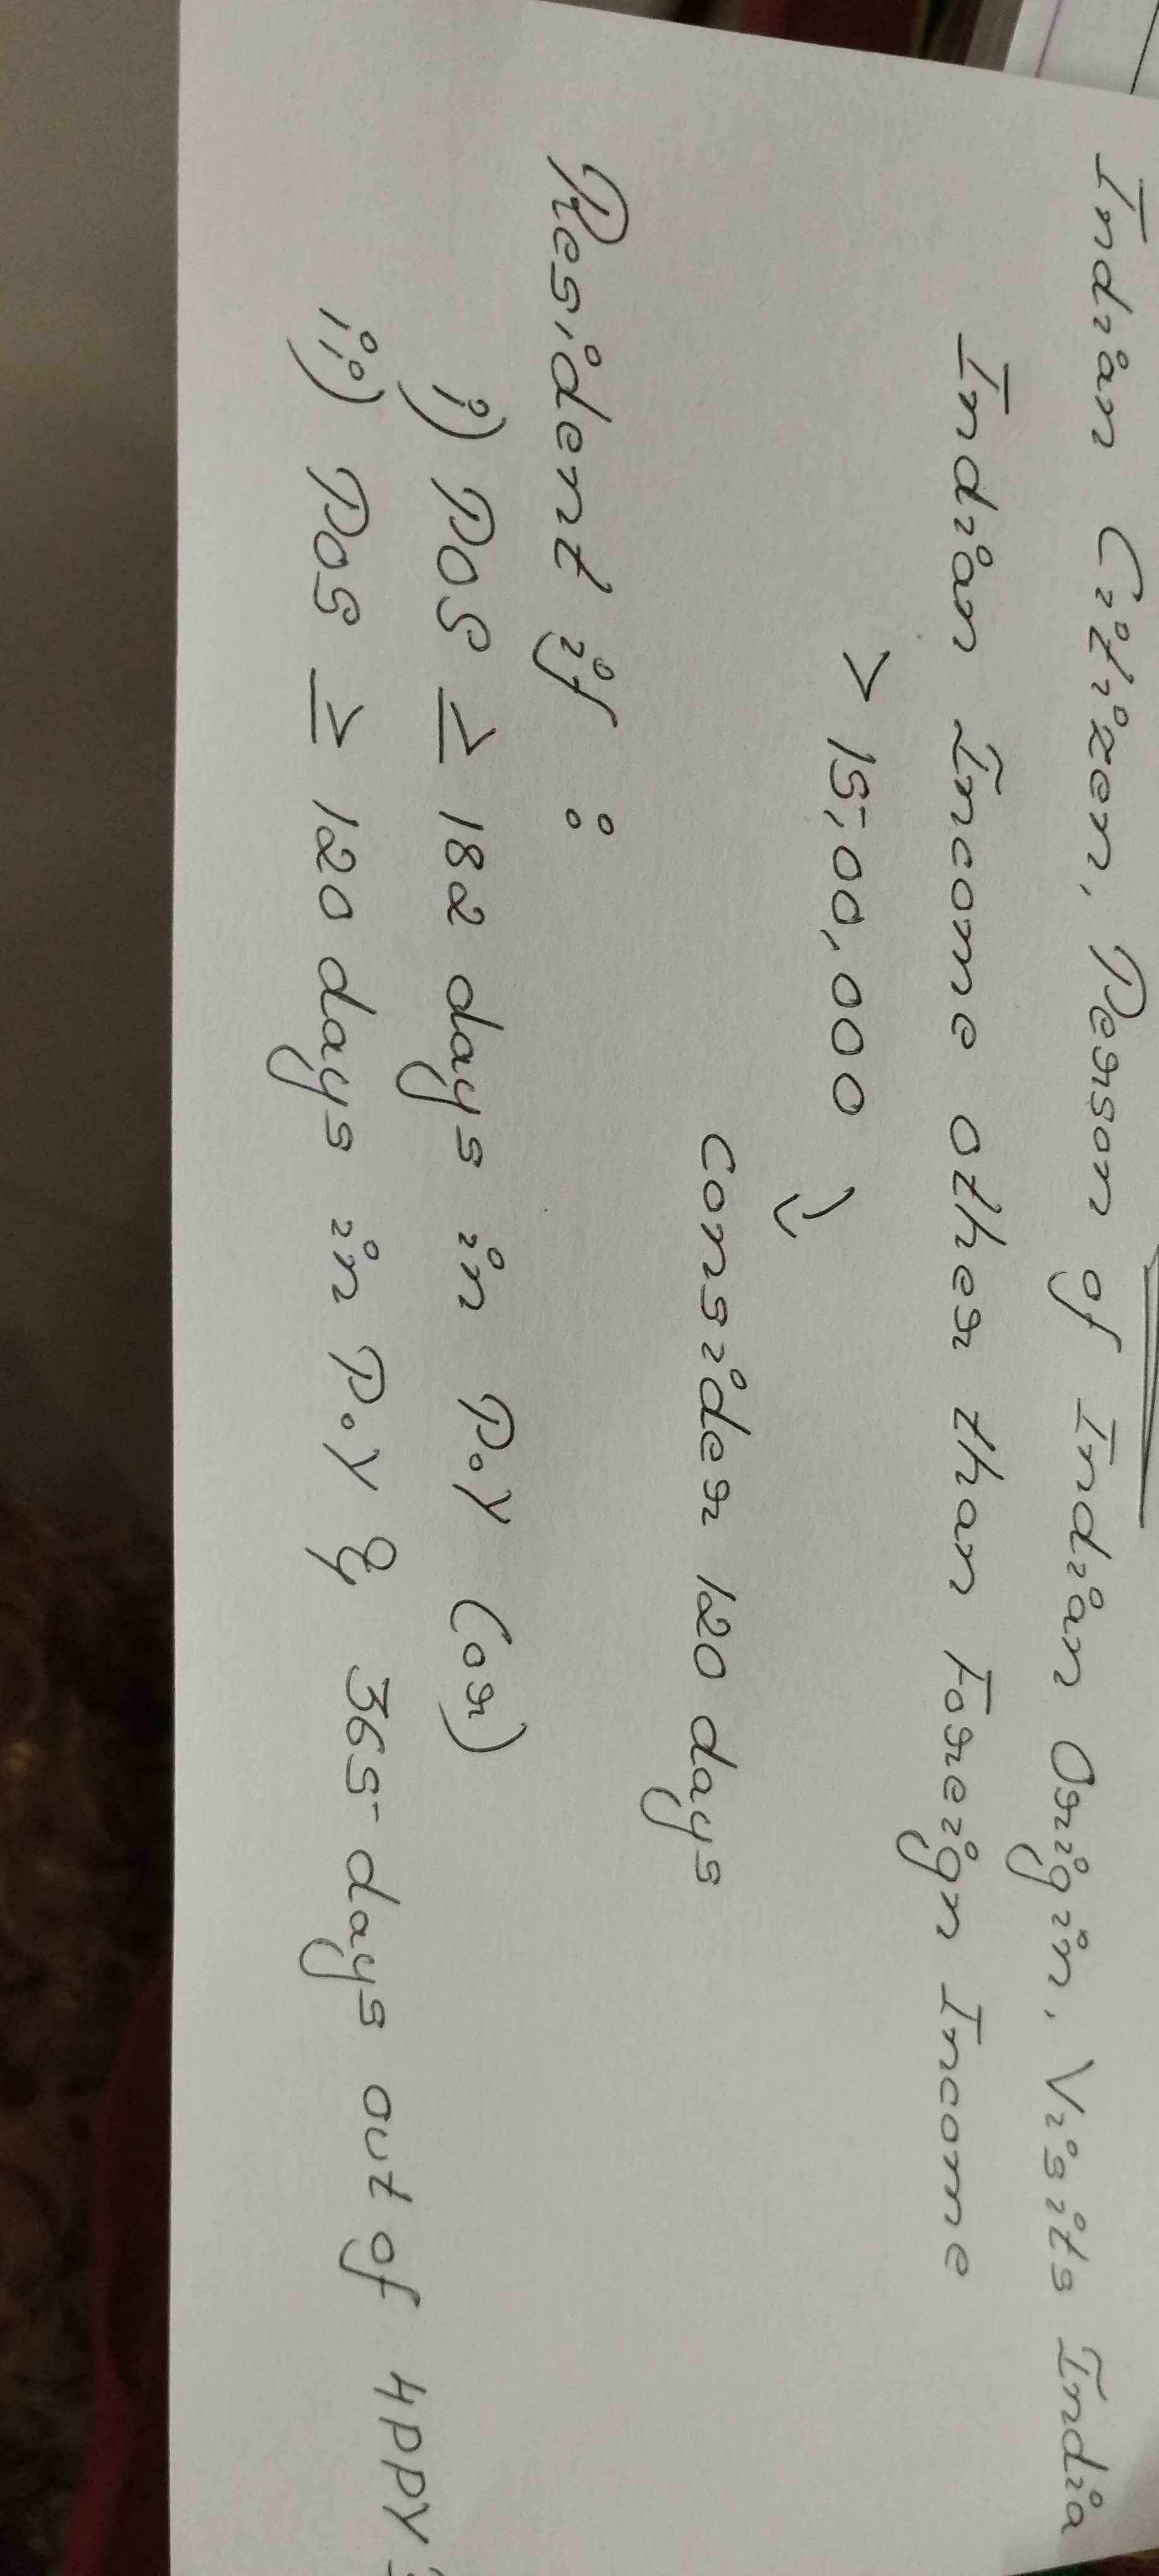 Indian Citizen, Person of Indian Origin, Visits India
Indian Income other than Foreign Income
> 15,00,000
consider 120 days
Resident if :
i) POS ≥ 182 days in P.Y (or)
ii) POS ≥ 120 days in P.Y & 365 days out of 4PPY